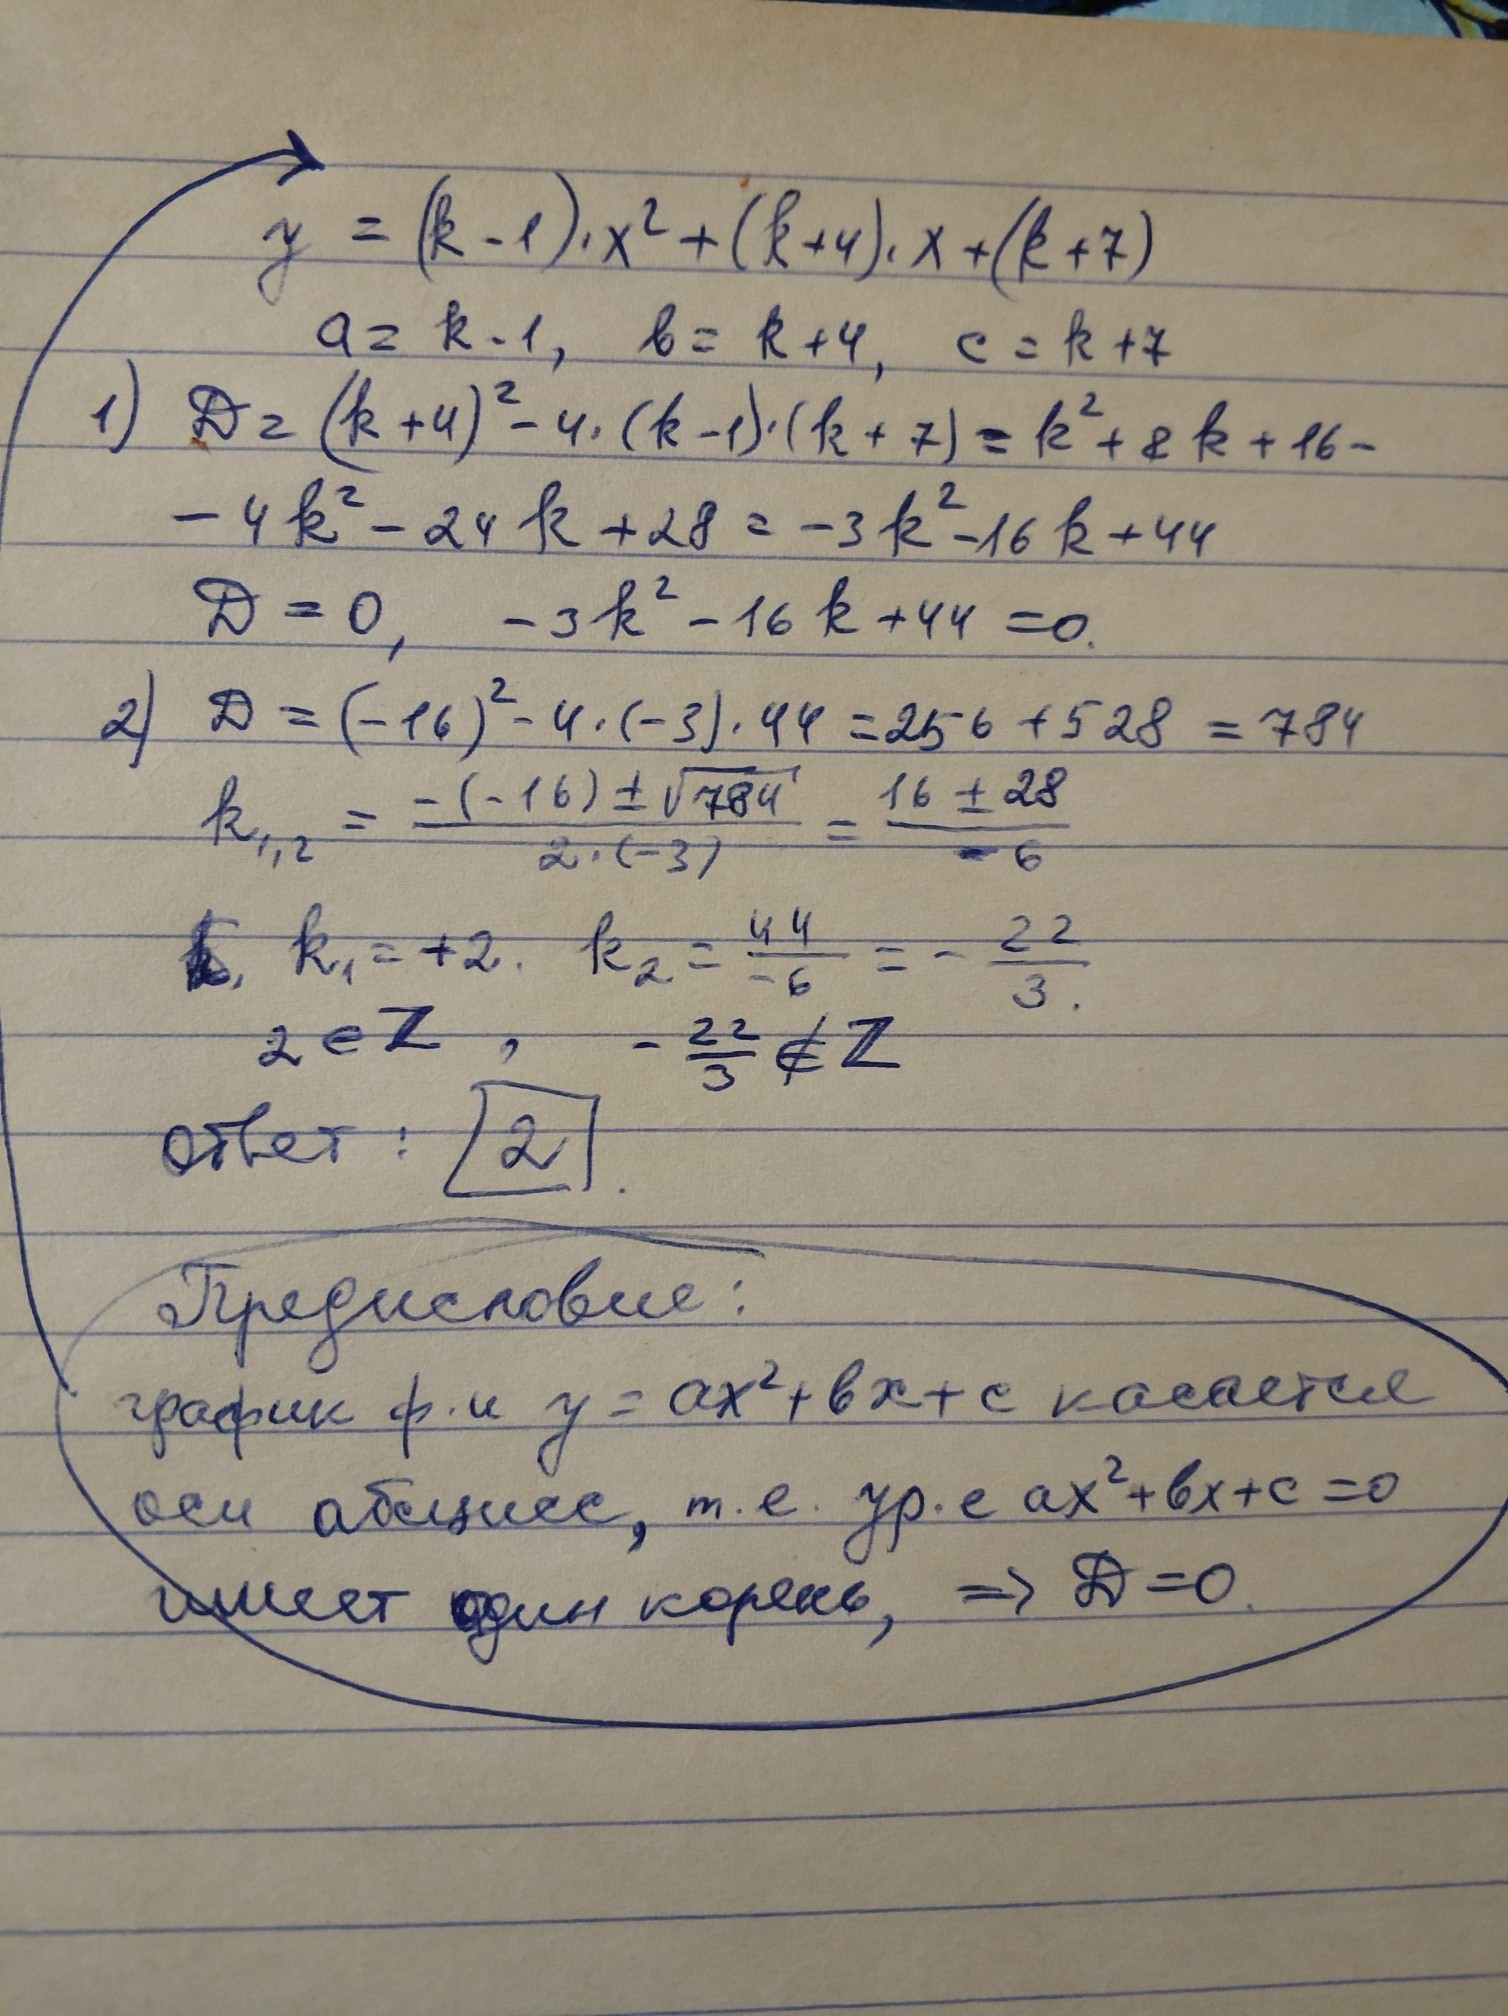 y = (k-1)·x² + (k+4)·x + (k+7)
a = k-1, b = k+4, c = k+7
1) D = (k+4)² - 4·(k-1)·(k+7) = k² + 8k + 16 -
- 4k² - 24k + 28 = -3k² - 16k + 44
D = 0, -3k² - 16k + 44 = 0.
2) D = (-16)² - 4·(-3)·44 = 256 + 528 = 784
k₁,₂ = (-(-16) ± √784) / (2·(-3)) = (16 ± 28) / (-6)
k₁ = +2. k₂ = 44/(-6) = - 22/3.
2 ∈ ℤ, - 22/3 ∉ ℤ
ответ: 2.
Предисловие:
график ф.и y = ax² + bx + c касается
оси абсцисс, т.е. ур.е ax² + bx + c = 0
имеет один корень, => D = 0.